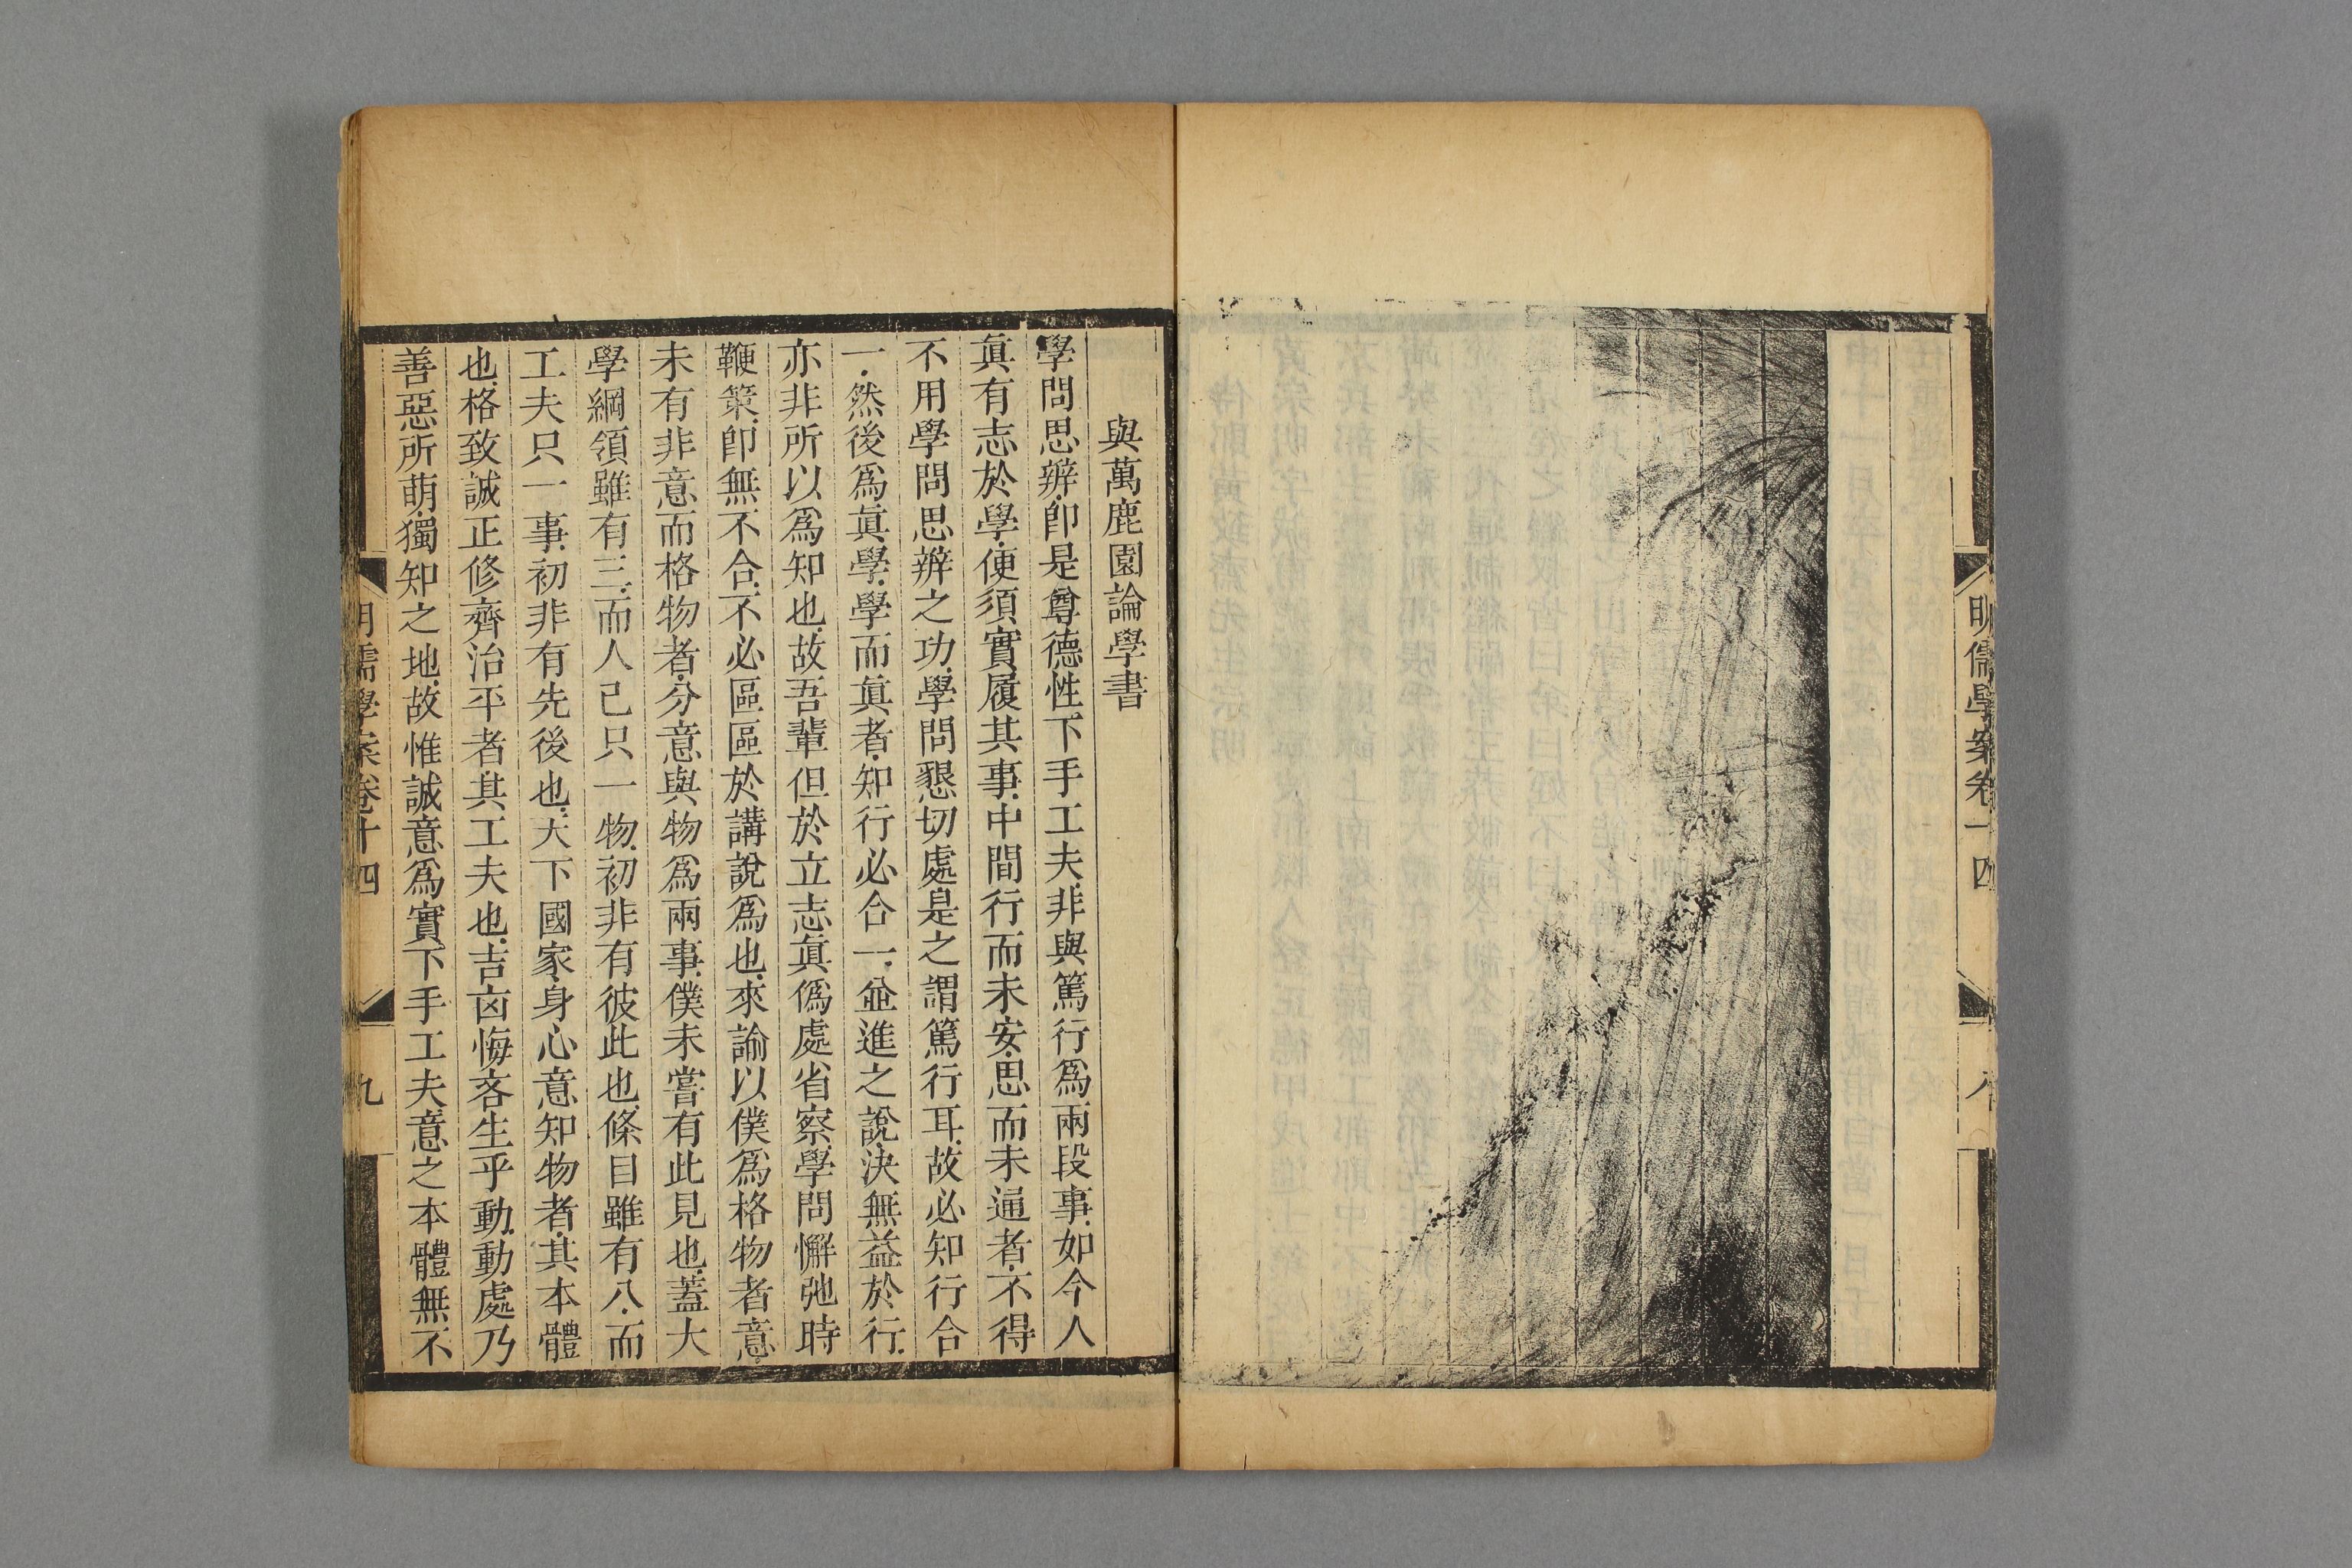 明儒學案卷十四
八
與萬鹿園論學書
學問思辨.卽是尊德性下手工夫.非與篤行爲兩段事.如今人
眞有志於學.便須實履其事.中間行而未安.思而未逼者.不得
不用學問思辨之功.學問懇切處是之謂篤行耳.故必知行合
一.然後爲眞學.學而眞者.知行必合一.並進之說.決無益於行.
亦非所以爲知也.故吾輩但於立志眞僞處.省察學問懈弛時
鞭策.卽無不合.不必區區於講說爲也.來論以僕爲格物者意.
未有非意而格物者.分意與物爲兩事.僕未嘗有此見也.蓋大
學綱領雖有三.而人己只一物.初非有彼此也.條目雖有八.而
工夫只一事.初非有先後也.天下國家.身心意知物者.其本體
也.格致誠正修齊治平者其工夫也.吉凶悔吝生乎動.動處乃
善惡所萌.獨知之地.故惟誠意爲實下手工夫意之本體無不
明儒學案卷十四
九